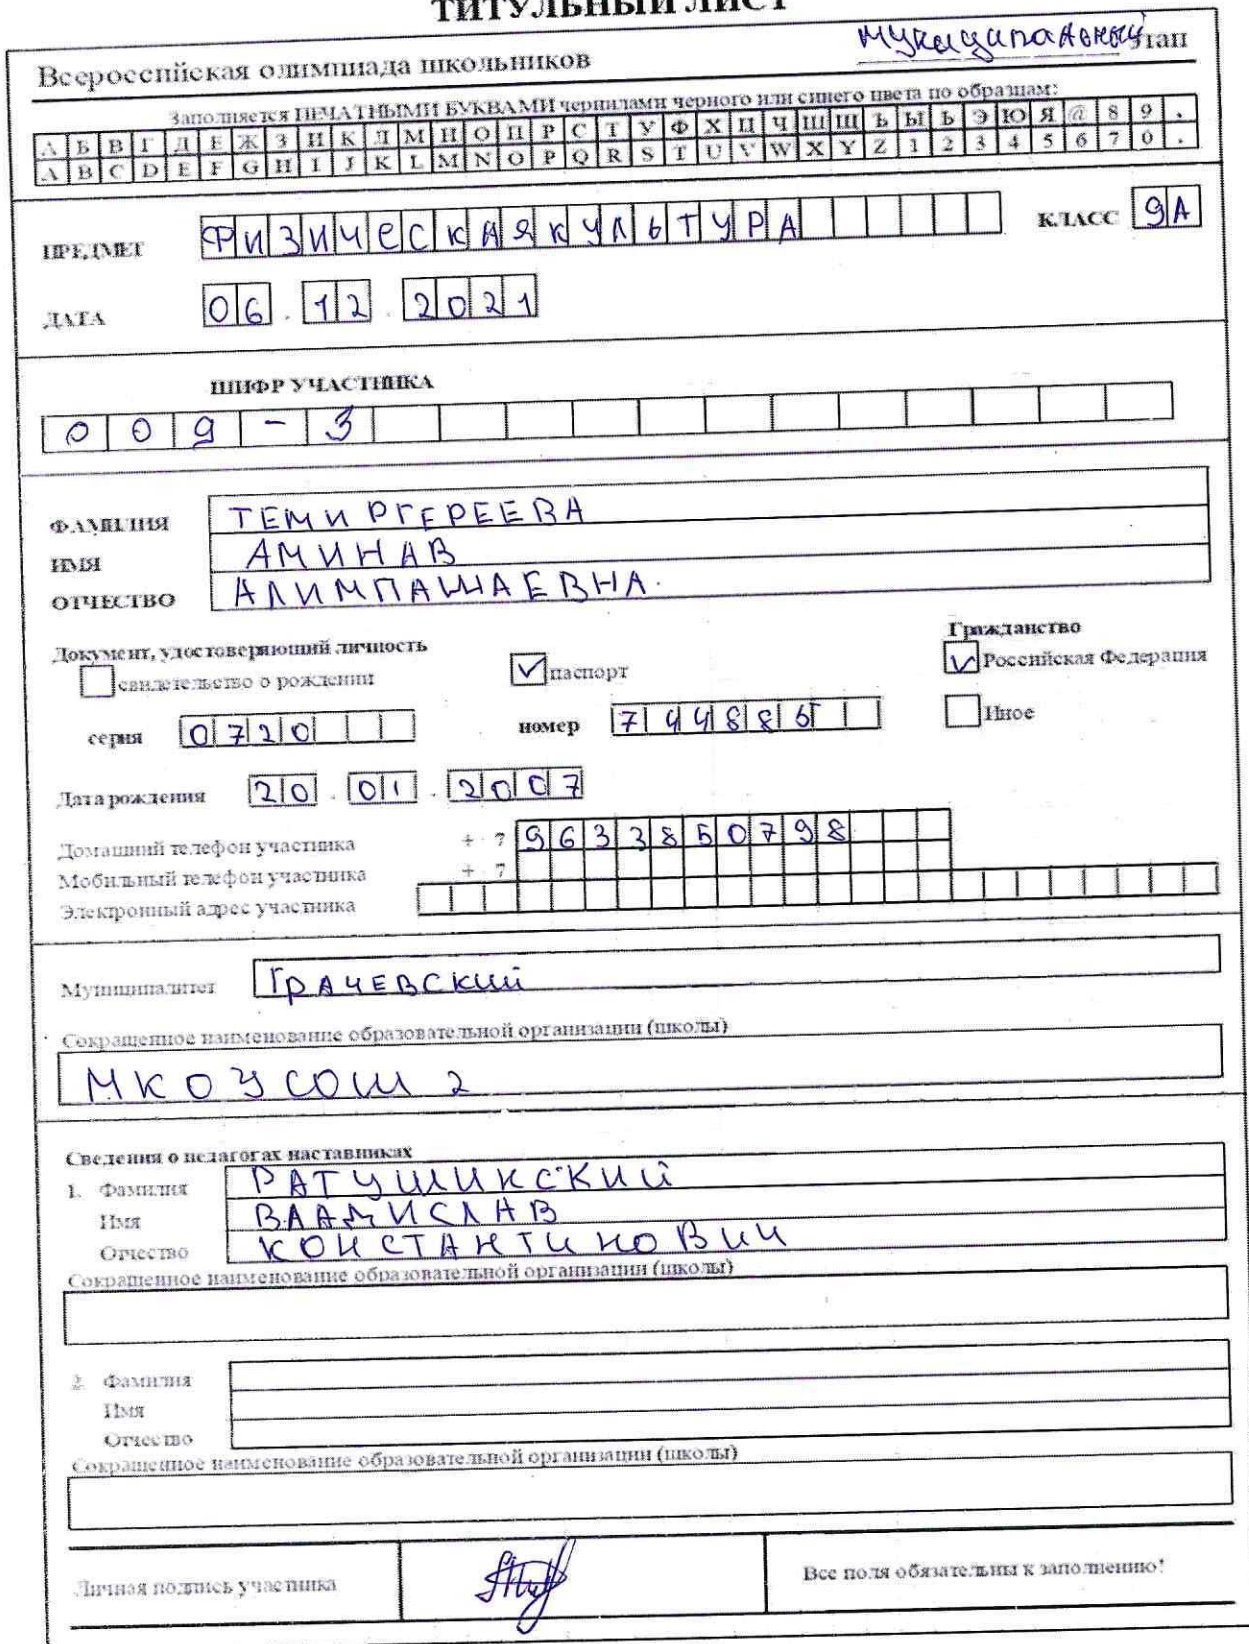 ТИТУЛЬНЫЙ ЛИСТ
Всероссийская олимпиада школьников муниципальный этап
Заполняется ПЕЧАТНЫМИ БУКВАМИ чернилами черного или синего цвета по образцам:
А Б В Г Д Е Ж З И К Л М Н О П Р С Т У Ф Х Ц Ч Ш Щ Ъ Ы Ь Э Ю Я @ 8 9 .
A B C D E F G H I J K L M N O P Q R S T U V W X Y Z 1 2 3 4 5 6 7 0 .
ПРЕДМЕТ ФИЗИЧЕСКАЯКУЛЬТУРА КЛАСС 9А
ДАТА 06 . 12 . 2021
ШИФР УЧАСТНИКА
009-3
ФАМИЛИЯ ТЕМИРГЕРЕЕВА
ИМЯ АМИНАВ
ОТЧЕСТВО АЛИМПАШАЕВНА.
Документ, удостоверяющий личность Гражданство
свидетельство о рождении паспорт Российская Федерация
серия 0720 номер 744886 Иное
Дата рождения 20 . 01 . 2007
Домашний телефон участника + 7 9633850798
Мобильный телефон участника + 7
Электронный адрес участника
Муниципалитет ГРАЧЕВСКИЙ
Сокращенное наименование образовательной организации (школы)
МКОУСОШ 2
Сведения о педагогах наставниках
1. Фамилия РАТУШИНСКИЙ
Имя ВЛАДИСЛАВ
Отчество КОНСТАНТИНОВИЧ
Сокращенное наименование образовательной организации (школы)
2 Фамилия
Имя
Отчество
Сокращенное наименование образовательной организации (школы)
Личная подпись участника Все поля обязательны к заполнению!